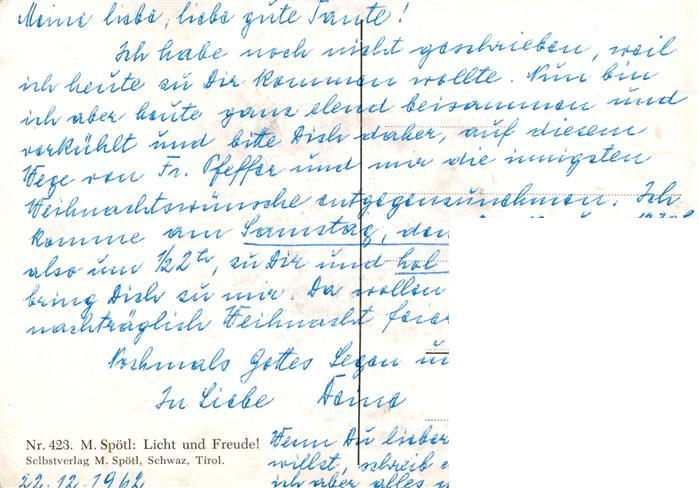 Meine liebe, liebe gute Tante!
Ich habe noch nicht geschrieben, weil
ich heute zu Dir kommen wollte. Nun bin
ich aber heute ganz elend beisammen und
verkühlt und bitte Dich daher, auf diesem
Wege von Fr. Pfeffer und mir die innigsten
Weihnachtswünsche entgegenzunehmen. Ich
komme am Samstag, den
also um 1/2 2h, zu Dir und hol
bring Dich zu mir. Da wollen
nachträglich Weihnacht feier
Nochmals Gottes Segen un
In Liebe Deine
Nr. 423. M. Spötl: Licht und Freude!
Selbstverlag M. Spötl, Schwaz, Tirol.
22.12.1962
Wenn Du lieber
willst, schreib e
ich aber alles